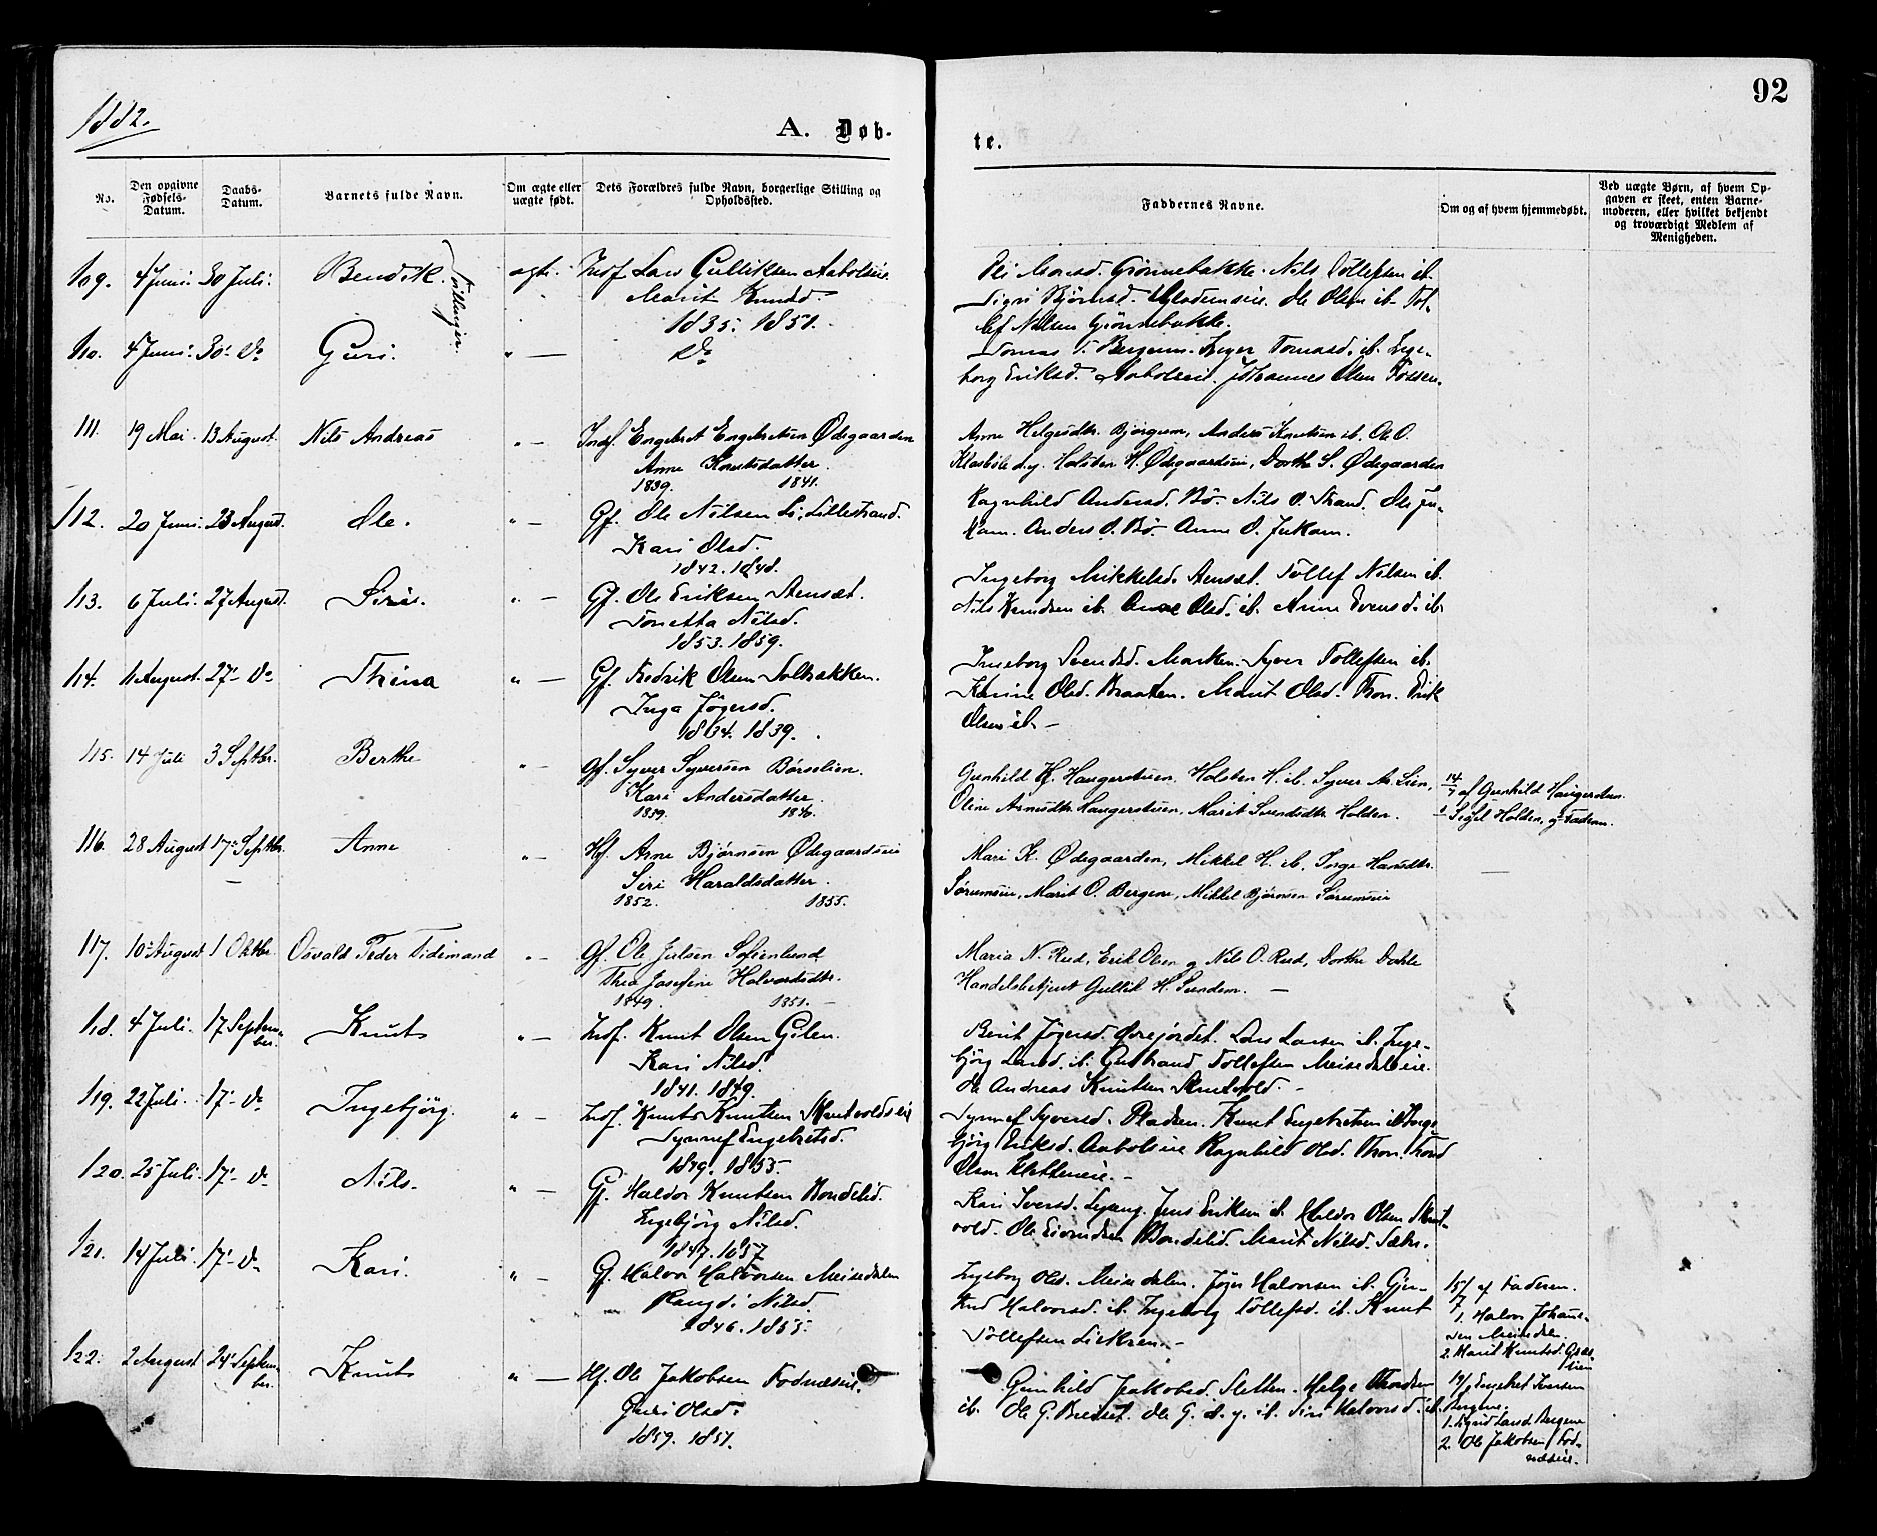 1882.
92
A. Døb-
te.
No.
Den opgivne Fødsels-Datum.
Daabs-Datum.
Barnets fulde Navn.
Om ægte eller uægte født.
Dets Forældres fulde Navn, borgerlige Stilling og Opholdssted.
Faddernes Navne.
Om og af hvem hjemmedøbt.
Ved uægte Børn, af hvem Op-
gaven er skeet, enten Barne-
moderen, eller hvilket bekjendt
og troværdigt Medlem af
Menigheden.
109. 4 Juni. 30 Juli. Bendik. Tvillinger. ægte. Indf. Lars Gulliksen Aabolseie
Marit Knudsd.
1835. 1851.
Grønnebakke. Nils Tollefsen ib.
Sigri Bjørnsd. Ole Olsen ib. Tol-
lef Nilsen Grønnebakke.
110. 4 Juni. 30' Do Guri. " — Do
Tomas T. Bergum. Tomasd. ib. Inge-
borg Eriksd. Aabolseie. Johannes Olsen Fossen.
111. 19 Mai. 13 August. Nils Andreas " — Indf. Engebret Engebretsen Ødegaarden
Anne Knutsdatter.
1839. 1841.
Anne Helgesdtr. Bjørgum, Anders Knutsen ib. Ole O.
Klasbøle d.y. Holsten H. Ødegaardseie, Dorthe S. Ødegaarden
112. 20 Juni. 23 August. Ole. " — Gf. Ole Nilsen Lillestrand.
Kari Olsd.
1842. 1848.
Ragnhild Andersd. Bø. Nils O. Strand. Ole Ju-
kam. Anders O. Bø. Anne O. Jukam.
113. 6 Juli. 27 August. Siri. " — Gf. Ole Eriksen Stensæt.
Tonetta Nilsd.
1853. 1859.
Ingeborg Mikkelsd. Stensæt. Tollef Nilsen ib.
Nils Knudsen ib. Olsd. ib. Anne Svensd. ib.
114. 11 August. 27' Do Thina " — Gf. Fredrik Olsen Solbakken.
Inga Jøgersd.
1834. 1839.
Ingeborg Svendsd. Marken. Syver Tollefsen ib.
Karine Olsd. Braaten. Marit Olsd. Thon. Erik
Olsen ib. —
115. 14 Juli 3 Septbr. Berthe " — Gf. Syver Syversen Børselien.
Kari Andersdatter.
1839. 1840.
Gunhild K. Haugerstuen. Holsten H. ib. Syver A. Lien,
Oline Arnesdtr. Haugerstuen, Marit Svendsdtr. Holden.
14/7 af Gunhild Haugerstuen.
Sigil Holden, og Faderen.
116. 28 August 17' Septbr. Anne " — Hf. Arne Bjørnsen Ødegaardseie
Siri Haraldsdatter.
1852. 1855.
Mari K. Ødegaarden, Mikkel H. ib. Inge Hansdtr.
Sørumseie, Marit O. Bergene, Mikkel Bjørnsen Sørumseie
—
117. 10' August 1 Oktbr. Osvald Peder Tidemand " — Gf. Ole Julsen Sofienlund
Thea Josefine Halvorsdtr.
1849. 1851. —
Maria N. Rud, Erik Olsen og Nils O. Rud, Dorthe Dahle
Handelsbetjent Gullik H. Sundem. —
118. 4 Juli. 17 Septem-
ber. Knut " — Indf. Knut Olsen Gilen.
Kari Nilsd.
1841. 1849.
Berit Jøgersd. Øvrejordet. Lars Larsen ib. Inge-
bjørg Larsd. ib. Gulbrand Tollefsen Meisedaleie.
Ole Andreas Knutsen Skutvold. —
119. 22 Juli. 17' Do Ingebjørg. " — Indf. Knut Knutsen Skutvoldseie
Synnef Engebretsd.
1849. 1855.
Synnef Syversd. Pladsen. Knut Engebretsen ib. Inge-
bjørg Eriksd. Aabolseie Ragnhild Olsd. Thon. Thord
Olsen
120. 25 Juli. 17' Do Nils. " — Gf. Haldor Knutsen Bondelid.
Ingebjørg Nilsd.
1847. 1857
Kari Iversd. Jens Eriksen ib. Haldor Olsen Skut-
vold. Ole Eivindsen Bondelid. Marit Nilsd. Sæter.
121. 14 Juli. 17' Do Kari. " — Gf. Halvor Halvorsen Meisedalen
Rangdi Nilsd.
1846. 1855.
Ingeborg Olsd. Meisedalen. Jøger Halvorsen ib. Gun-
hild Halvorsd. ib. Ingeborg Tollefsd. ib. Knut
Tollefsen
15/7 af Faderen.
1. Halvor Johann-
sen Meisedalen.
2. Marit Knutsd.
122. 2 August 24' Septem-
ber. Knut " — Hf. Ole Jakobsen Fodnæseie.
Guri Olsd.
1859. 1857.
Gunhild Jakobsd. Sletten. Helge Thordsen
ib. Ole G. Ole G. d.y. ib. Siri Halvorsd. ib.
Engebret Iversen
Bergene.
1. Sigrid Larsd. Bergene
2. Ole Jakobsen Fod-
næseie.